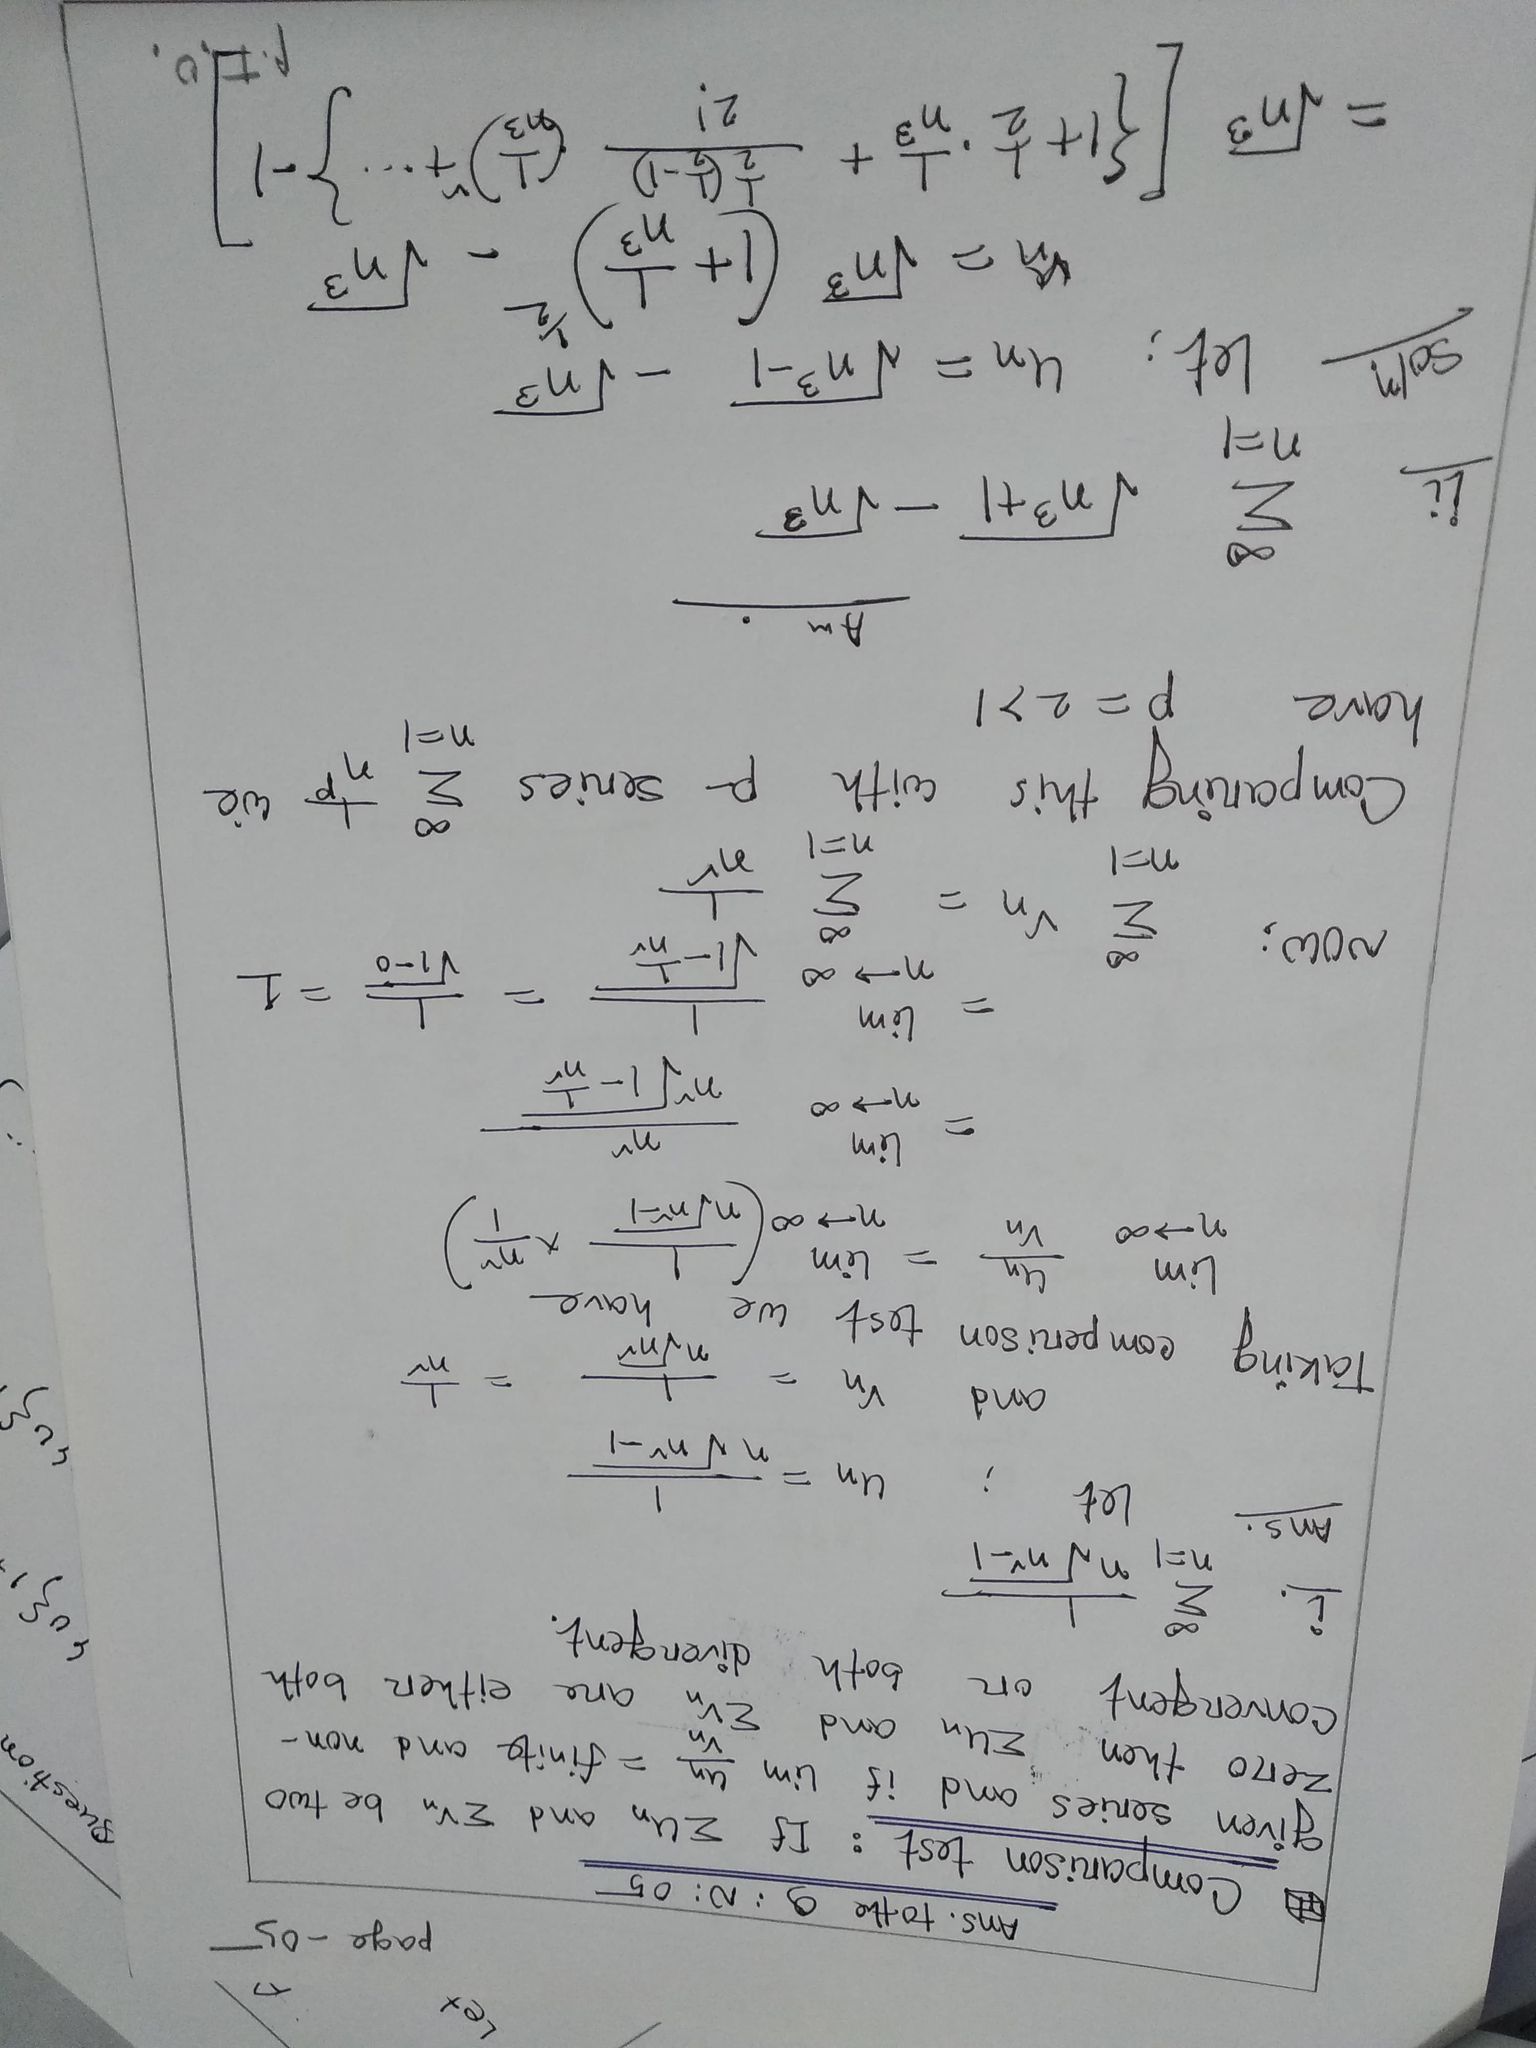 Let
page - 05
Ans. to the Q: N: 05
Comparison test : If Σun and Σvn be two
given series and if lim un/vn = finite and non-
zero then Σun and Σvn are either both
convergent or both divergent.
i. ∞Σn=1 1/(n√(n²-1))
Ans. Let ; un = 1/(n√(n²-1))
and vn = 1/(n√n²) = 1/n²
Taking comperison test we have
Lim n→∞ un/vn = lim n→∞ (1/(n√(n²-1)) × n²/1)
= lim n→∞ n²/(n²√(1-1/n²))
= lim n→∞ 1/√(1-1/n²) = 1/√(1-0) = 1
NOW; ∞Σn=1 vn = ∞Σn=1 1/n²
Comparing this with p- series ∞Σn=1 1/n^p we
have p = 2>1
Am .
ii ∞Σn=1 √(n³+1) - √n³
soln Let; un = √(n³-1) - √n³
= √n³ (1+1/n³)^½ - √n³
= √n³ [{1+½·1/n³ + ½(½-1)/2! (1/n³)²+...}-1]
P.T.O.
Question